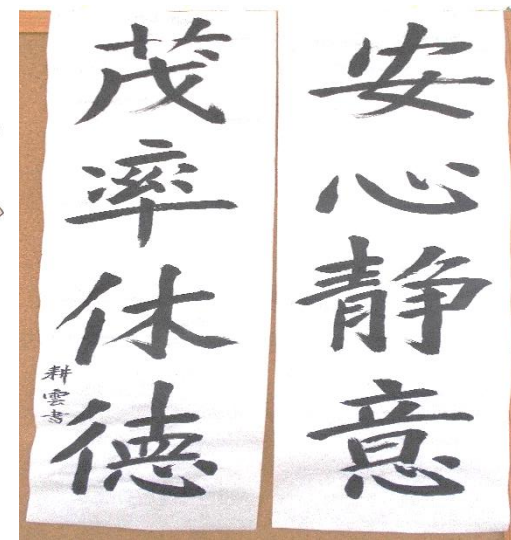 安心静意
茂率休徳
耕雲書